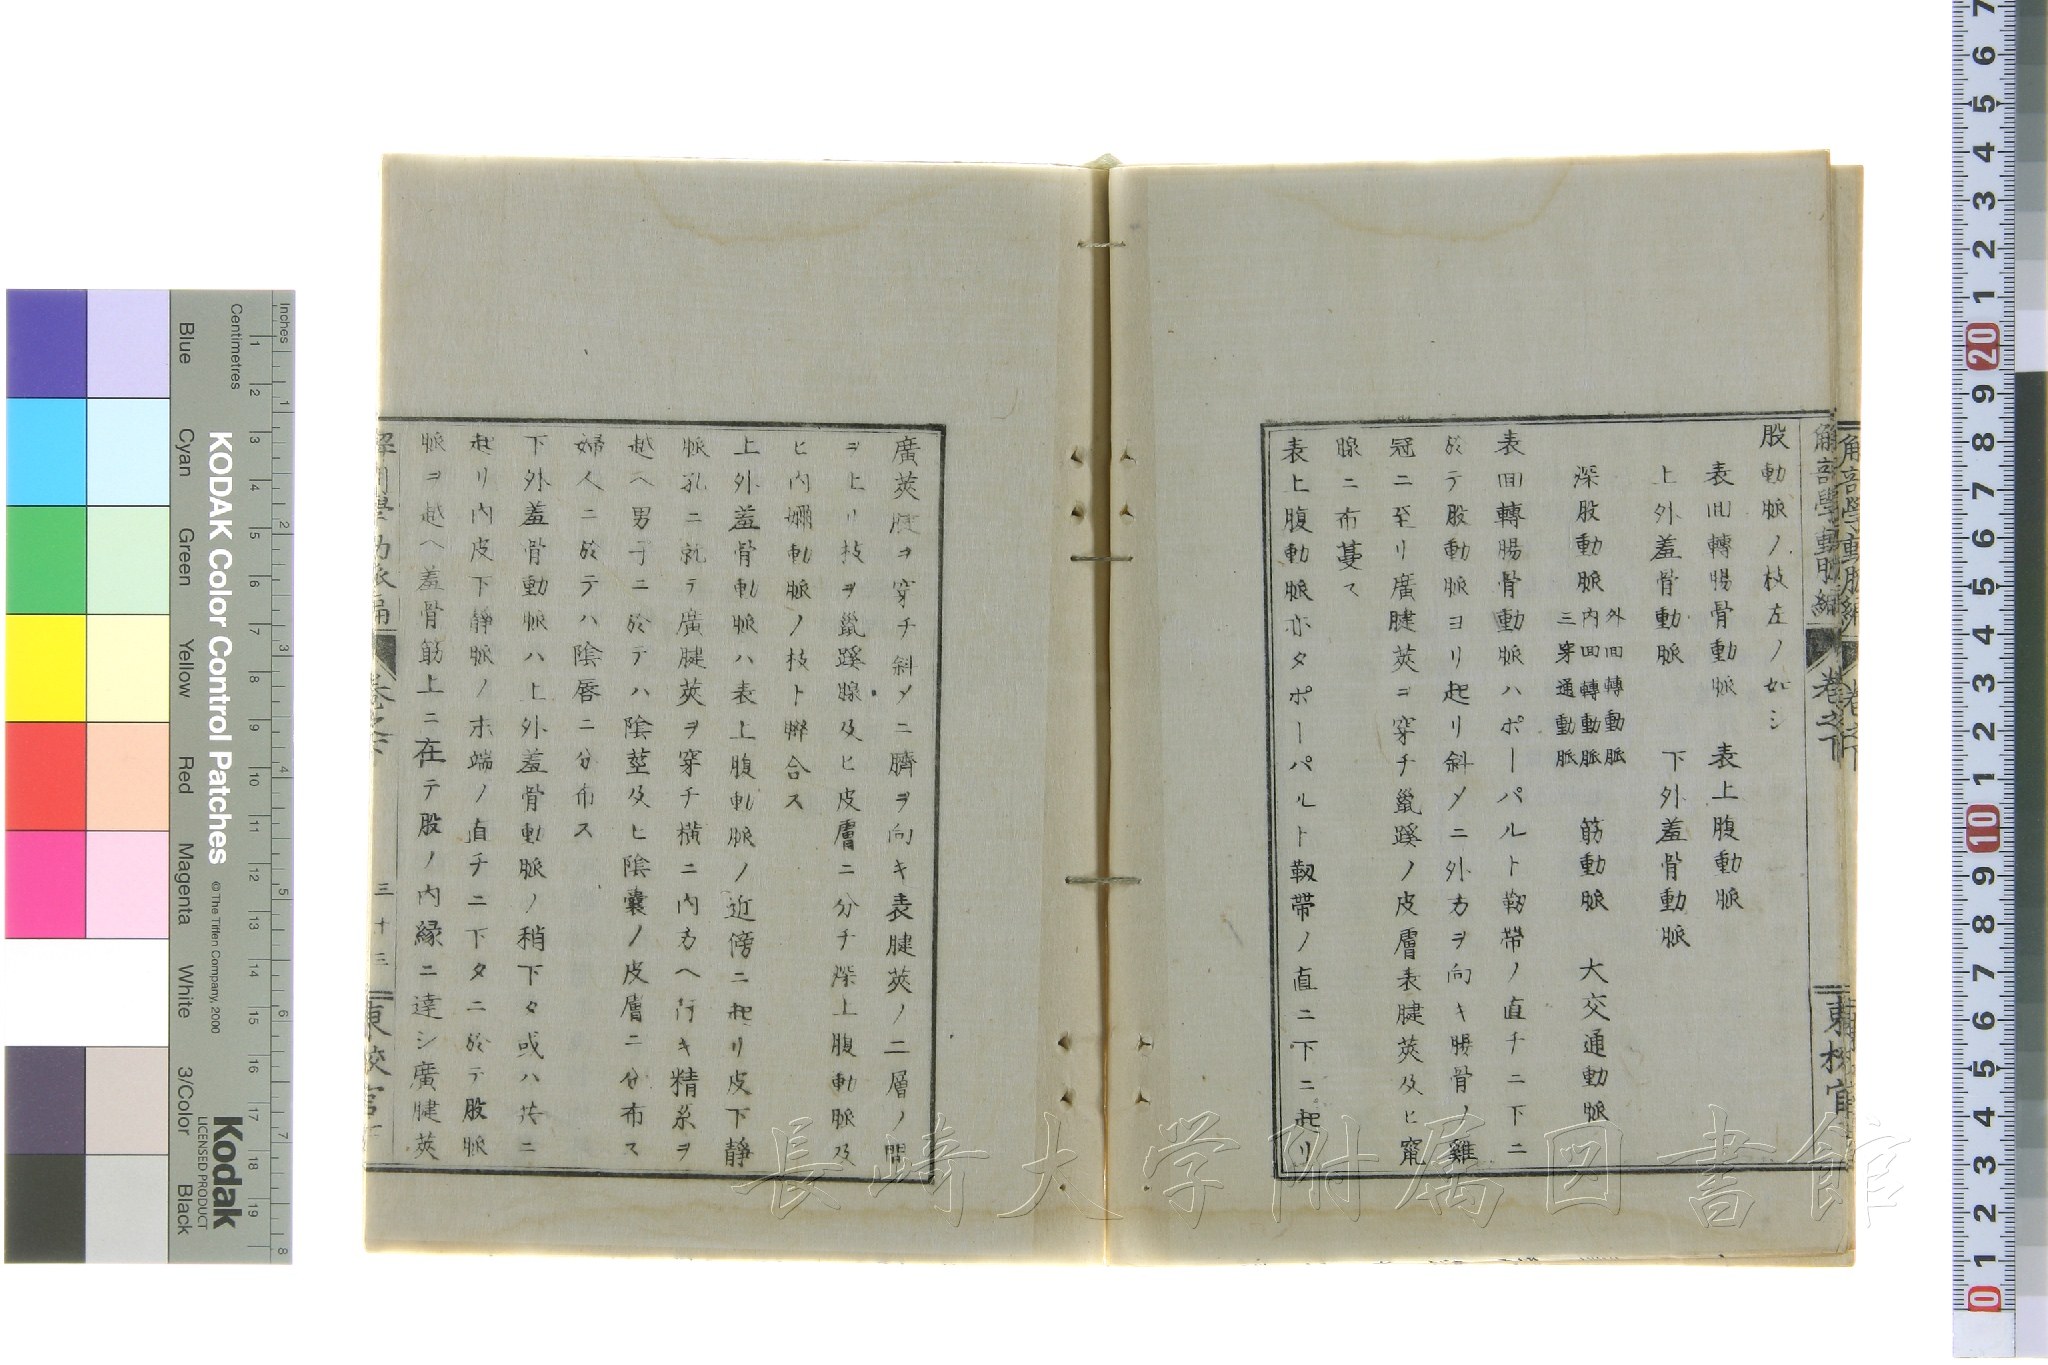 解剖學動脈編
卷之下
股動脈ノ枝左ノ如シ
表回轉腸骨動脈 表上腹動脈
上外羞骨動脈 下外羞骨動脈
深股動脈 外回轉動脈 內回轉動脈 三穿通動脈 筋動脈 大交通動脈
表回轉腸骨動脈ハポーパルト靱帶ノ直チニ下ニ
於テ股動脈ヨリ起リ斜メニ外方ヲ向キ腸骨ノ雞
冠ニ至リ廣腱莢ヲ穿チ鼠蹊ノ皮膚表腱莢及ヒ窠
腺ニ布蔓ス
表上腹動脈亦タポーパルト靱帶ノ直ニ下ニ起リ
廣莢腱ヲ穿チ斜メニ臍ヲ向キ表腱莢ノ二層ノ間
ヲ上リ枝ヲ鼠蹊腺及ヒ皮膚ニ分チ深上腹動脈及
ヒ內嬭動脈ノ枝ト聯合ス
上外羞骨動脈ハ表上腹動脈ノ近傍ニ起リ皮下靜
脈孔ニ就テ廣腱莢ヲ穿チ橫ニ內方ヘ行キ精系ヲ
越ヘ男子ニ於テハ陰莖及ヒ陰囊ノ皮膚ニ分布ス
婦人ニ於テハ陰唇ニ分布ス
下外羞骨動脈ハ上外羞骨動脈ノ稍下タ或ハ共ニ
起リ內皮下靜脈ノ末端ノ直チニ下タニ於テ股脈
脈ヲ越ヘ羞骨筋上ニ在テ股ノ內緣ニ達シ廣腱莢
三十三
長崎大学附属図書館
KODAK Color Control Patches
©The Tiffen Company, 2000
Kodak
LICENSED PRODUCT
Inches
Centimetres
Blue
Cyan
Green
Yellow
Red
Magenta
White
3/Color
Black